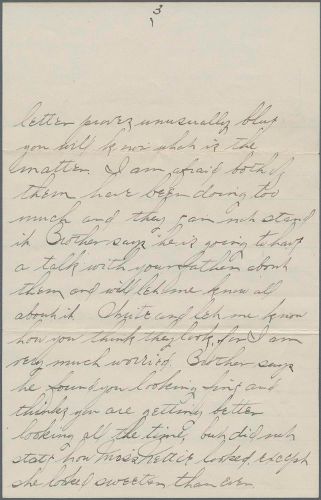 3
letter proves unusually blue
you will know what is the
matter. I am afraid both of
them have been doing too
much and they can not stand
it. Brother says he is going to have
a talk with your Father about
them and will let me know all
about it. Write and let me know
how you think they look, for I am
very much worried. Brother says
he found you looking fine and
thinks you are getting better
looking all the time, but did not
state how Miss Nettie looked, except
she looked sweeter than ever.